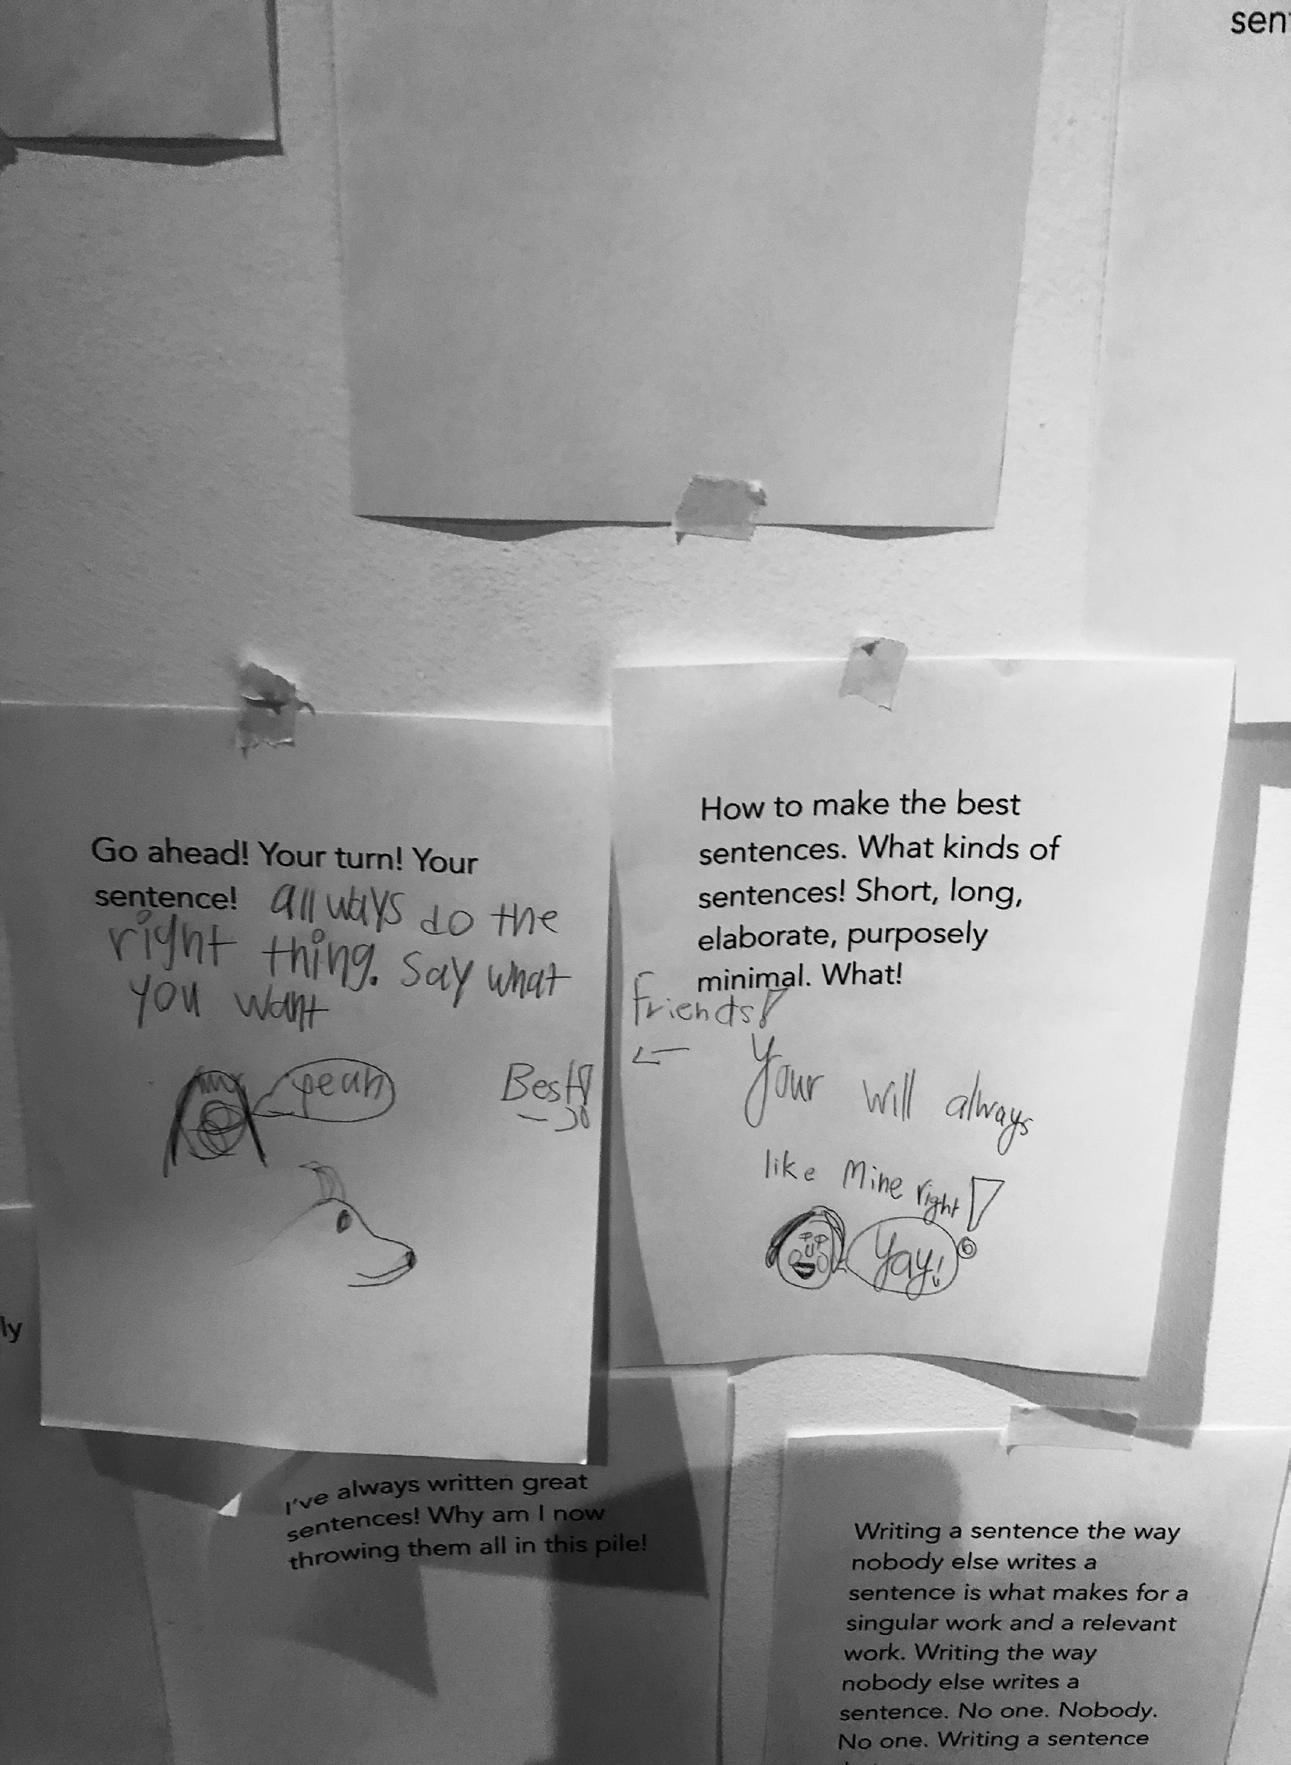 sen
Go ahead! Your turn! Your
sentence! allways do the
right thing. Say what
you want
yeah
Best!
How to make the best
sentences. What kinds of
sentences! Short, long,
elaborate, purposely
minimal. What!
Friends!
Your will always
like Mine right!
Yay!
ly
I've always written great
sentences! Why am I now
throwing them all in this pile!
Writing a sentence the way
nobody else writes a
sentence is what makes for a
singular work and a relevant
work. Writing the way
nobody else writes a
sentence. No one. Nobody.
No one. Writing a sentence